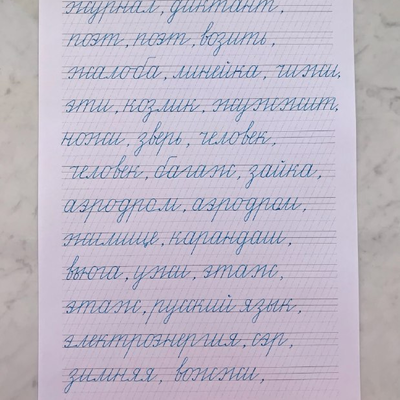 журнал, диктант,
поэт, поэт, возить,
жалоба, линейка, чижи,
эти, козлик, жужжит,
ножи, зверь, человек,
человек, багаж, зайка,
аэродром, аэродром,
жилище, карандаш,
вьюга, ужи, этаж,
этаж, русский язык,
электроэнергия, сэр,
зимняя, вожжи,